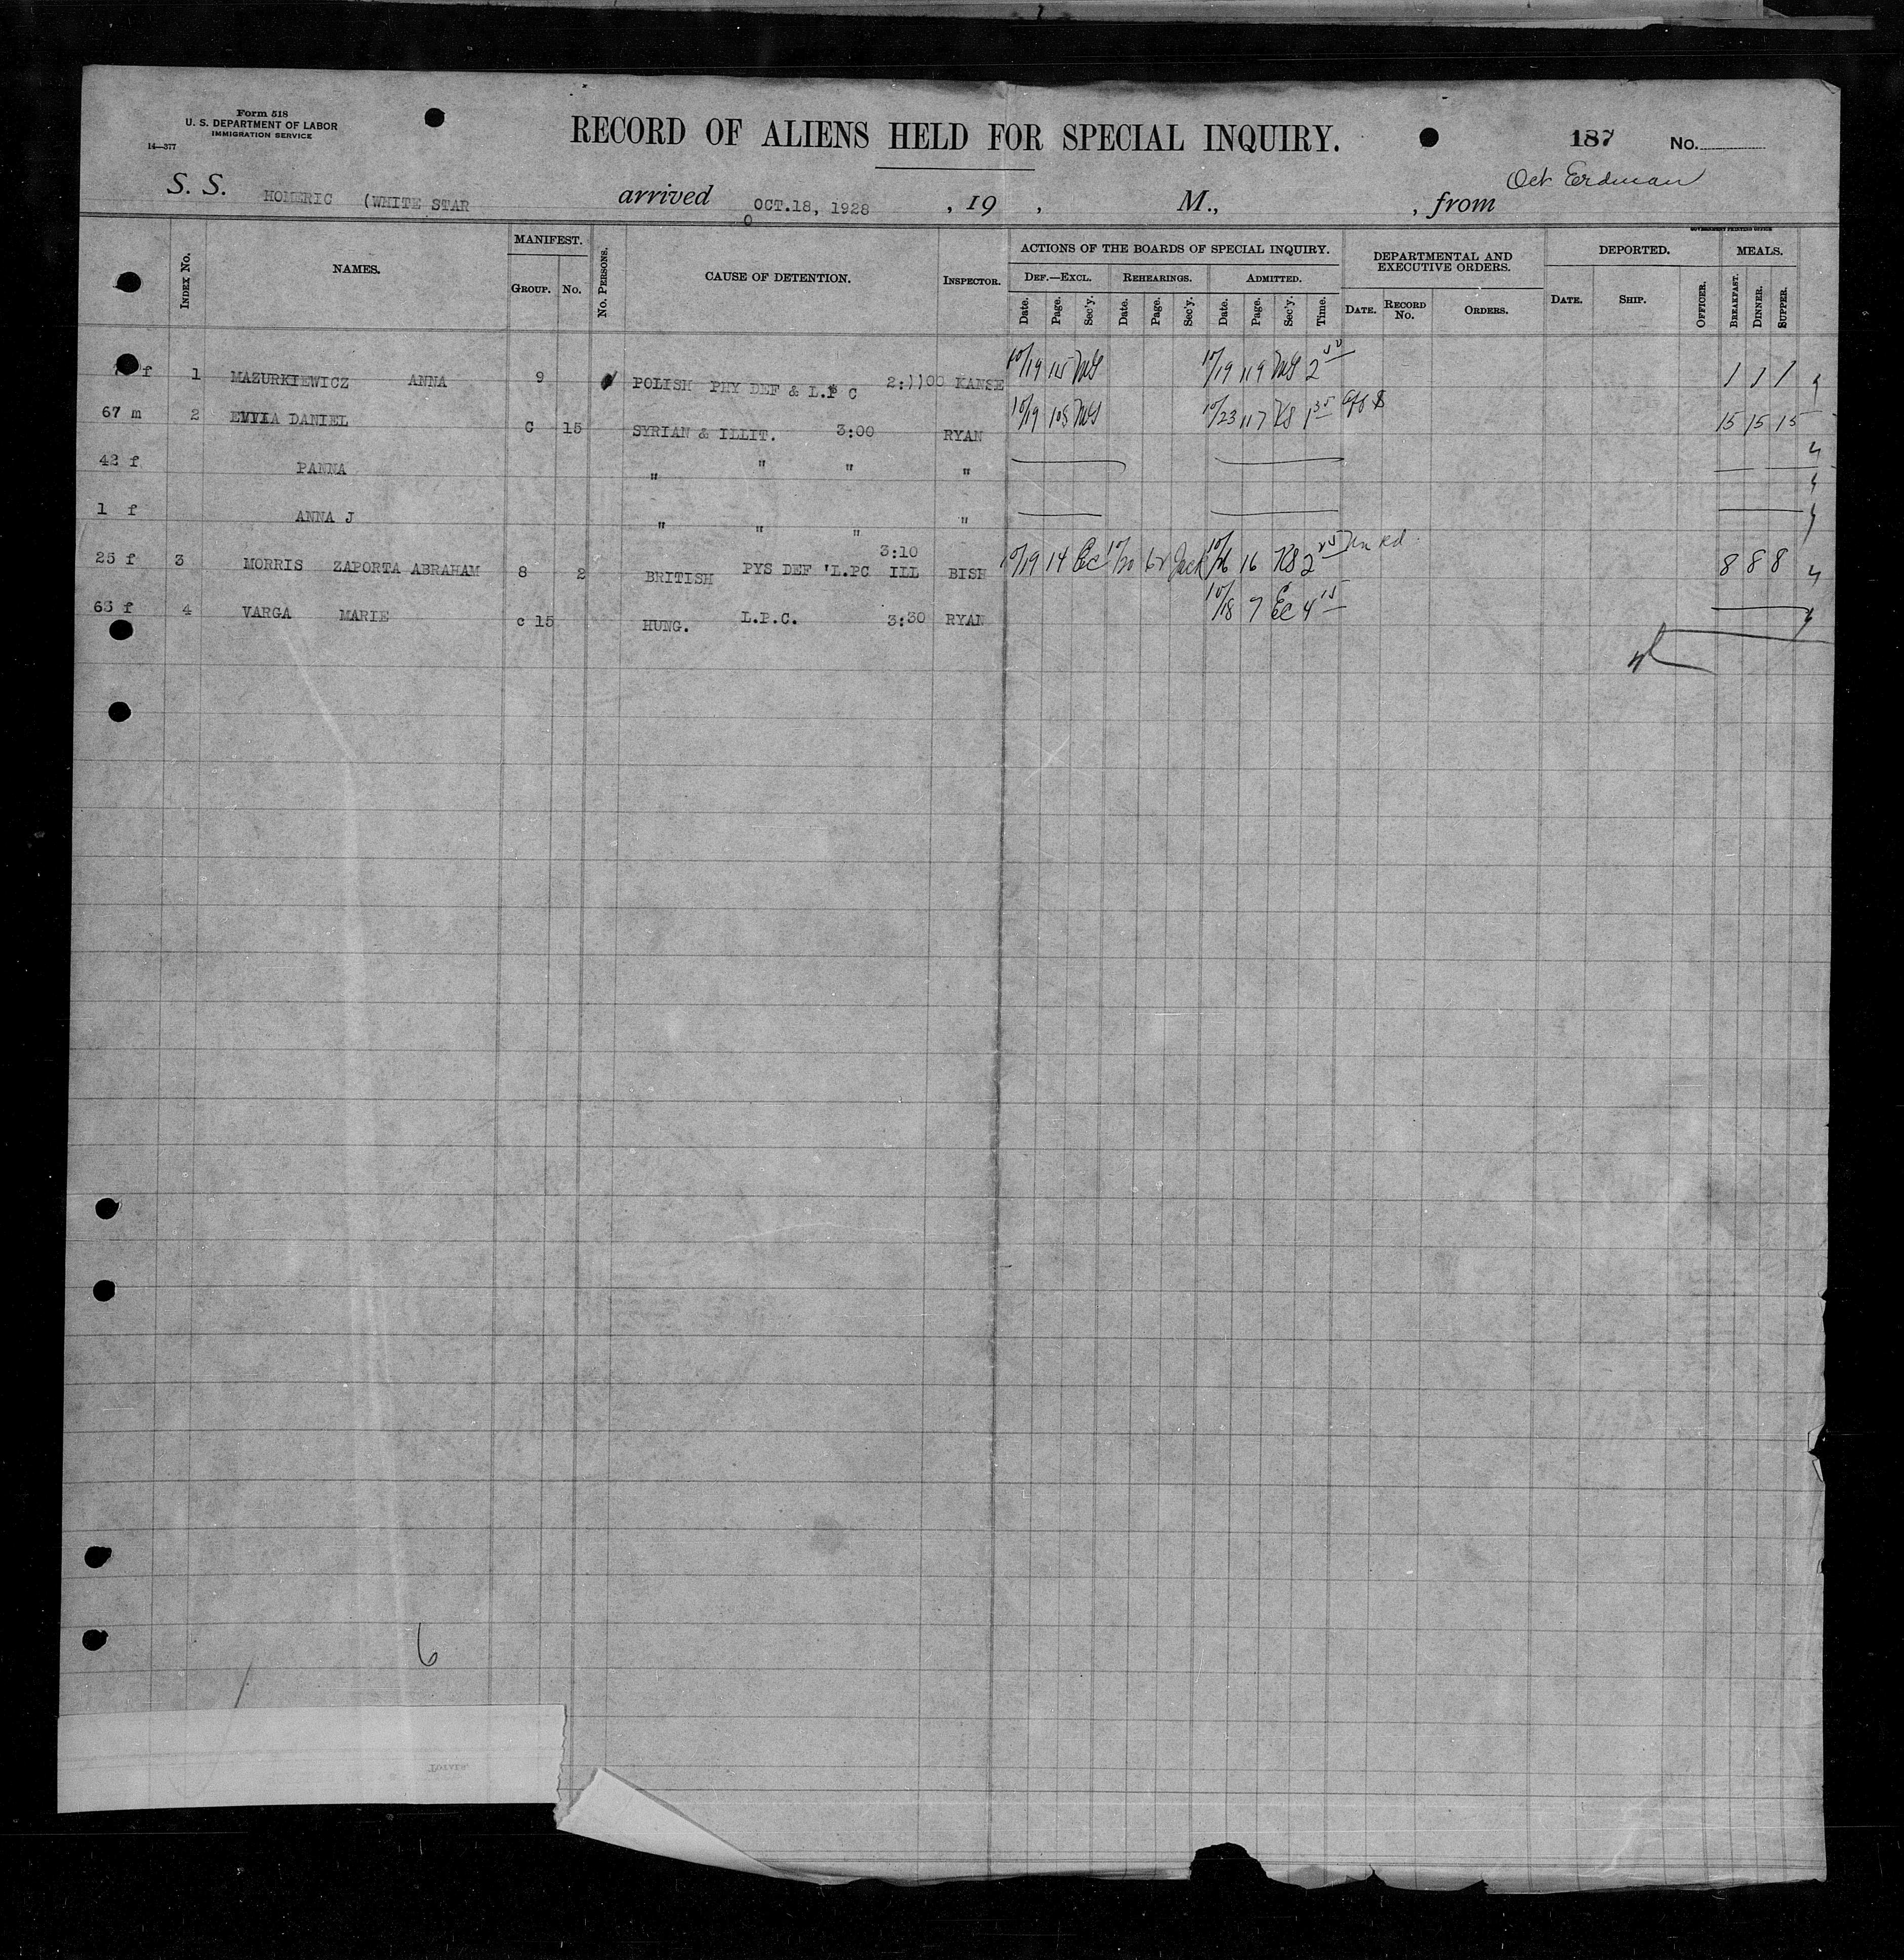 Form 518
U. S. DEPARTMENT OF LABOR
IMMIGRATION SERVICE
14—377
RECORD OF ALIENS HELD FOR SPECIAL INQUIRY.
187 No.
S. S. HOMERIC (WHITE STAR arrived OCT.18, 1928 , 19 , M., , from Oct Erdman
GOVERNMENT PRINTING OFFICE
INDEX No. NAMES. MANIFEST. GROUP. No. No. PERSONS. CAUSE OF DETENTION. INSPECTOR. ACTIONS OF THE BOARDS OF SPECIAL INQUIRY. DEPARTMENTAL AND EXECUTIVE ORDERS. DEPORTED. MEALS.
DEF.—EXCL. REHEARINGS. ADMITTED.
Date. Page. Sec'y. Date. Page. Sec'y. Date. Page. Sec'y. Time. DATE. RECORD No. ORDERS. DATE. SHIP. OFFICER. BREAKFAST. DINNER. SUPPER.
f 1 MAZURKIEWICZ ANNA 9 POLISH PHY DEF & L.P C 2:))00 KANSE 10/19 115 MG 10/19 119 MG 2 1 1 1
67 m 2 DANIEL C 15 SYRIAN & ILLIT. 3:00 RYAN 10/19 108 MG 10/23 117 KS 1 35 15 15 15
42 f PANNA " " " "
1 f ANNA J " " " "
25 f 3 MORRIS ZAPORTA ABRAHAM 8 2 BRITISH PYS DEF 'L.PC ILL 3:10 BISH 10/19 14 EC 10/20 62 Jack 10/26 16 KS 2 8 8 8
63 f 4 VARGA MARIE c 15 HUNG. L.P.C. 3:30 RYAN 10/18 7 EC 4 15
6
TOTALS